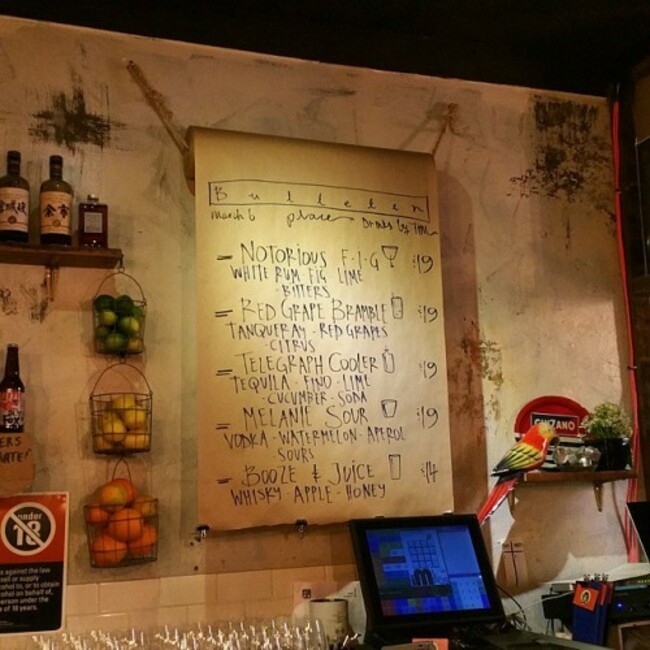 Bulletin
March 6 place Drinks by Tom
- NOTORIOUS F.I.G $19
WHITE RUM FIG LIME
- BITTERS
= RED GRAPE BRAMBLE $19
TANQUERAY - RED GRAPES
- CITRUS
= TELEGRAPH COOLER $19
TEQUILA - FINO - LIME
- CUCUMBER - SODA
= MELANIE SOUR $19
VODKA - WATERMELON - APEROL
SOURS
= BOOZE & JUICE $14
WHISKY - APPLE - HONEY
余市
under
18
against the law
sell or supply
alcohol to, or to obtain
alcohol on behalf of,
person under the
of 18 years.